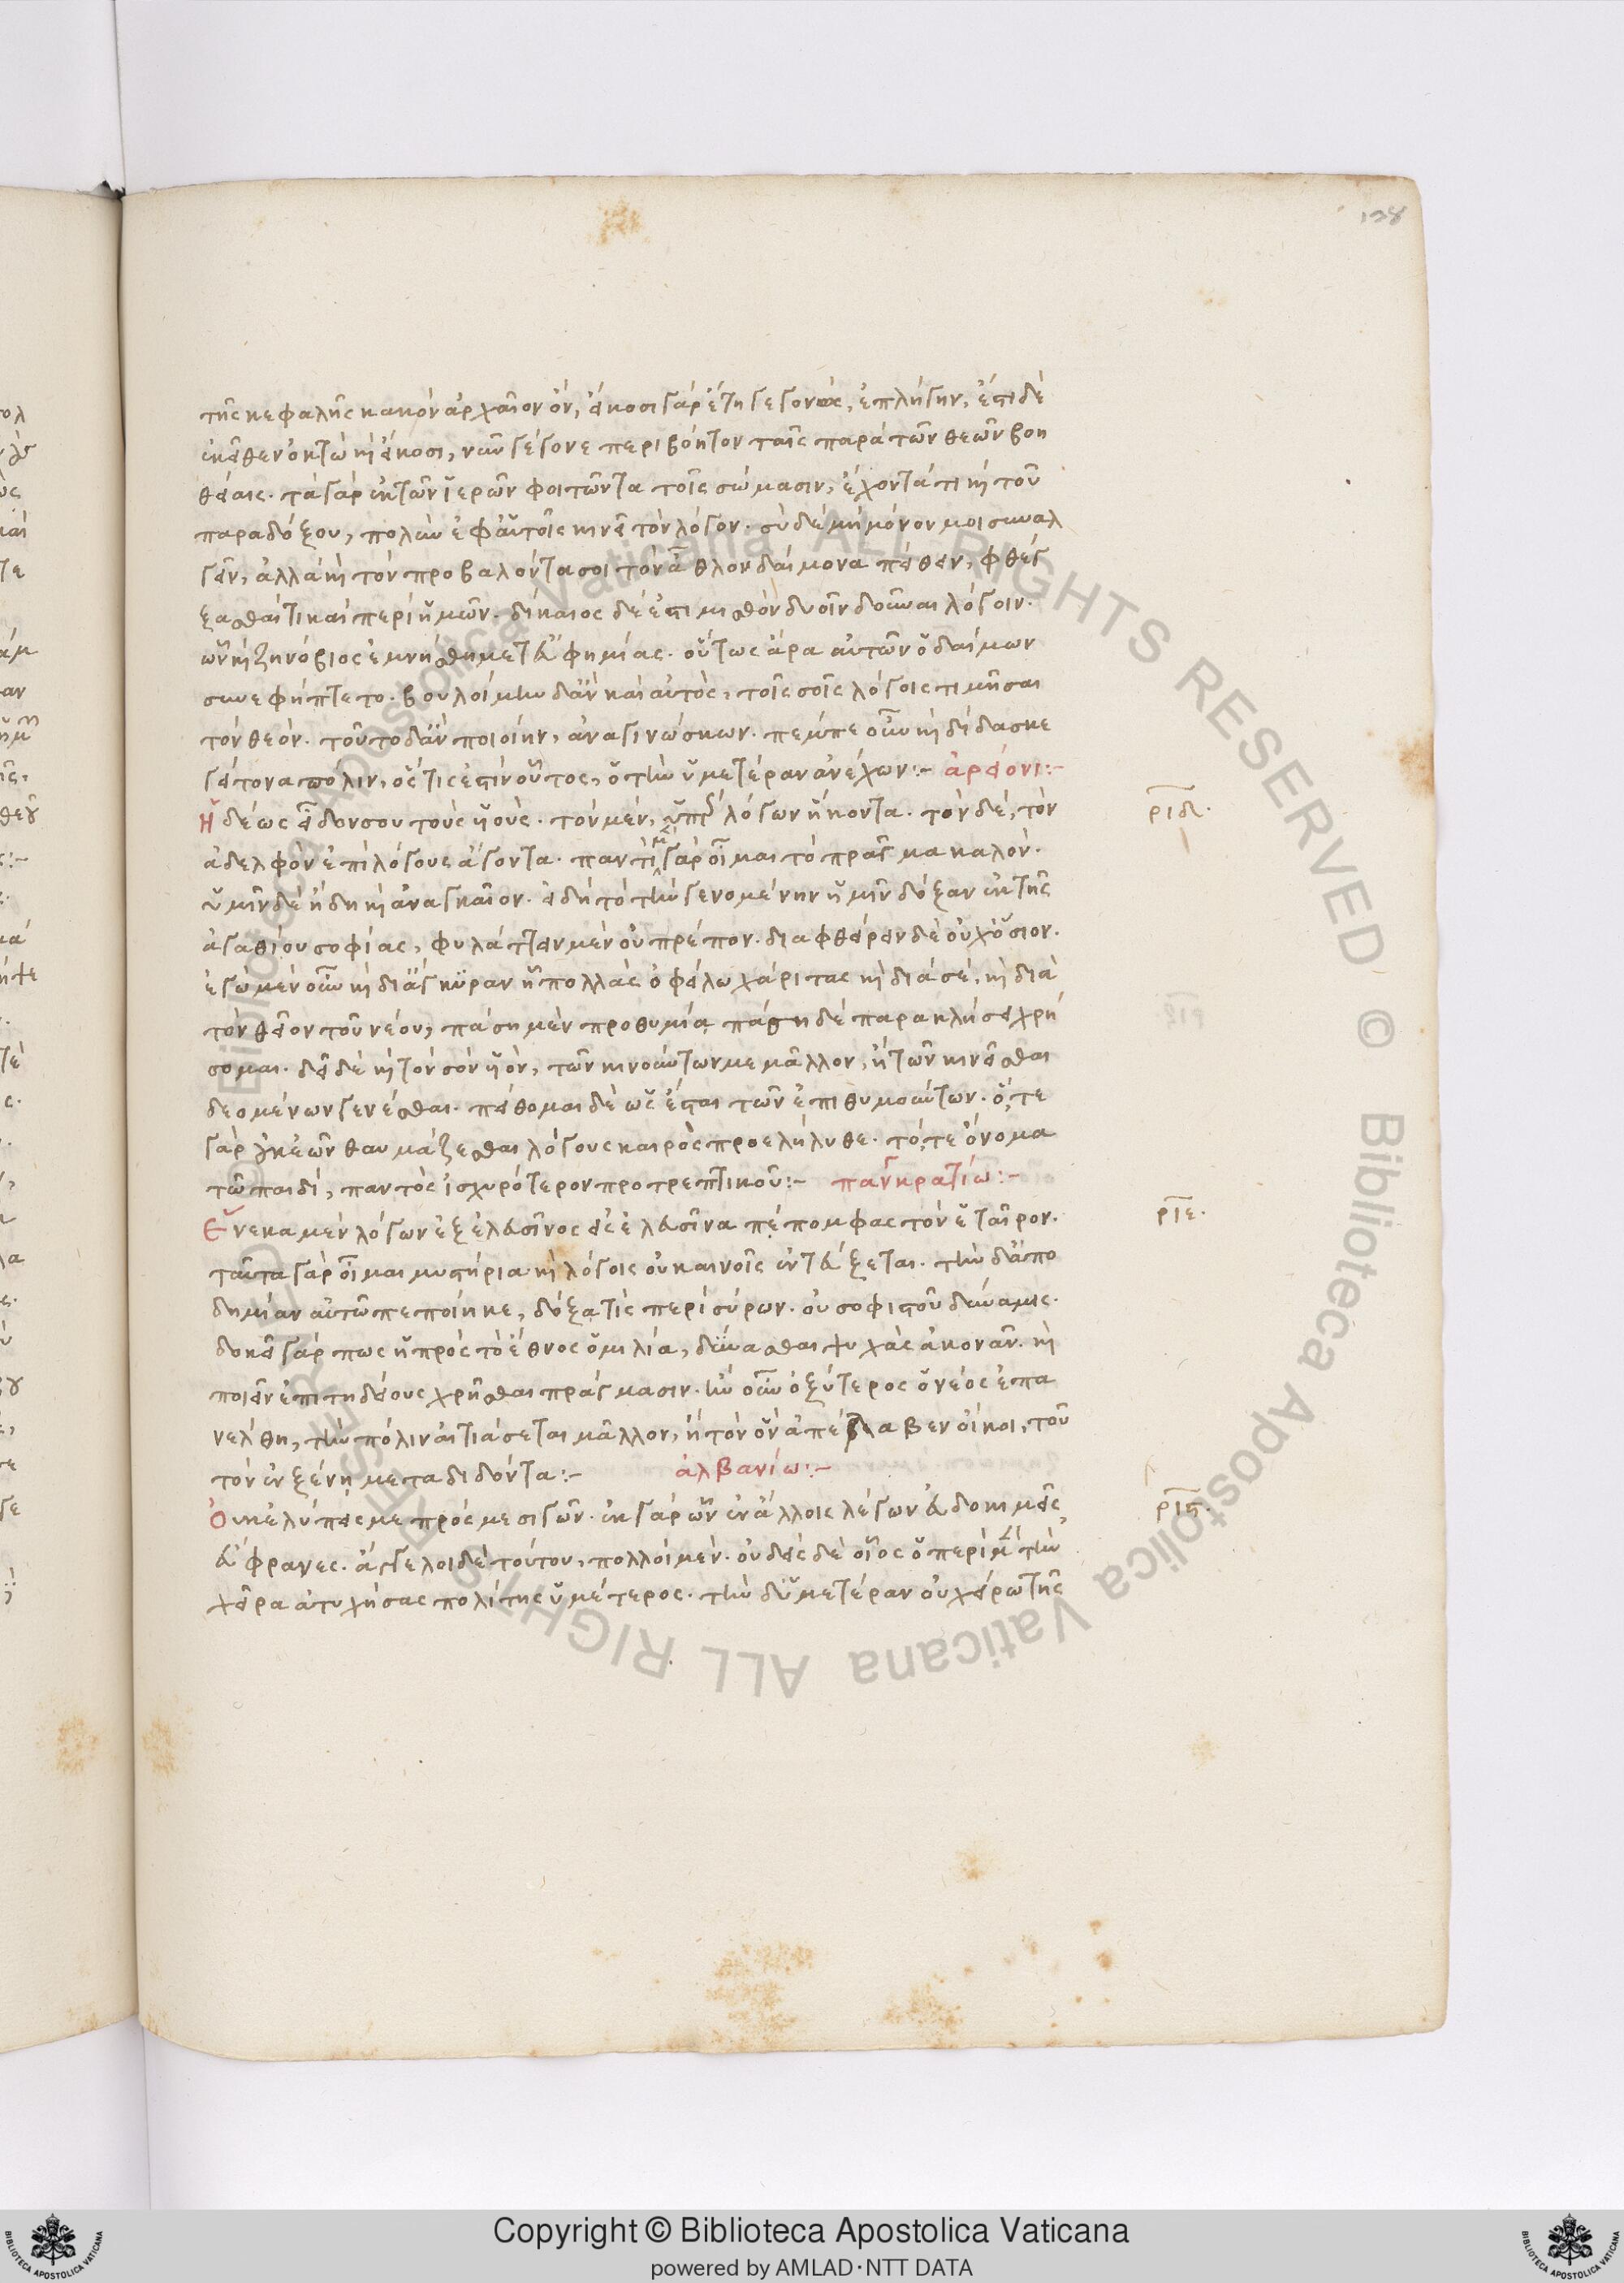 128
τῆς κεφαλῆς κακὸν ἀρχαῖον ὄν, εἴκοσι γὰρ ἔτη γεγονὼς, ἐπλήγην, ἔστι δὲ
ἐκεῖθεν ὀκτὼ καὶ εἴκοσι, νῦν γέγονε περιβόητον ταῖς παρὰ τῶν θεῶν βοη
θείαις. τὰ γὰρ ἐκ τῶν ἱερῶν φοιτῶντα τοῖς σώμασιν, ἔχοντά τι καὶ τοῦ
παραδόξου, πολὺν ἐφ' αὑτοῖς κινεῖ τὸν λόγον. σὺ δὲ μὴ μόνον μοι συναλ
γεῖν, ἀλλὰ καὶ τὸν προβαλόντα σοι τὸν ἆθλον δαίμονα πείθειν, φθέγ
ξασθαί τι καὶ περὶ ἡμῶν. δίκαιος δέ ἐστι μισθὸν δυοῖν δοῦναι λόγοιν.
ὧν καὶ ζηνόβιος ἐμνήσθη μετ' εὐφημίας. οὕτως ἄρα αὐτῶν ὁ δαίμων
συνεφήπτετο. βουλοίμην δ' ἂν καὶ αὐτὸς, τοῖς σοῖς λόγοις τιμῆσαι
τὸν θεόν. τοῦτο δ' ἂν ποιοίην, ἀναγινώσκων. πέμπε οὖν καὶ δίδασκε
γείτονα πόλιν, ὅστις ἐστὶν οὗτος, ὁ τὴν ὑμετέραν ἀνέχων:– ἀρείονι:–
Ἡδέως εἶδον σου τοὺς υἱούς. τὸν μὲν, ὑπὲρ λόγων ἥκοντα. τὸν δὲ, τὸν
ριδ.
ἀδελφὸν ἐπὶ λόγους ἄγοντα. παντὶ μὲν γὰρ οἶμαι τὸ πρᾶγμα καλόν.
ὑμῖν δὲ ἤδη καὶ ἀναγκαῖον. εἰ δή τὸ τὴν γενομένην ἡμῖν δόξαν ἐκ τῆς
ἀγαθίου σοφίας, φυλάττειν μὲν οὐ πρέπον. διαφθείρειν δὲ οὐχ ὅσιον.
ἐγὼ μὲν οὖν καὶ δι' ἄγκυραν ᾗ πολλὰς ὀφείλω χάριτας καὶ διὰ σὲ, καὶ διὰ
τὸν θεῖον τοῦ νέου, πάσῃ μὲν προθυμίᾳ πάσῃ δὲ παρακλήσει χρή
σομαι. δεῖ δὲ καὶ τὸν σὸν υἱὸν, τῶν κινούντων με μᾶλλον, ἢ τῶν κινεῖσθαι
δεομένων γενέσθαι. πείθομαι δὲ ὡς ἔσται τῶν ἐπιθυμούντων. ὅ,τε
γὰρ οὐκ ἐῶν θαυμάζεσθαι λόγους καιρὸς προελήλυθε. τό,τε ὄνομα
τῷ παιδὶ, παντὸς ἰσχυρότερον προτρεπτικοῦ:– παγκρατίῳ:–
Ἕνεκα μὲν λόγων ἐξ ἐλευσῖνος εἰς ἐλευσῖνα πέπομφας τὸν ἑταῖρον.
ριε.
ταῦτα γὰρ οἶμαι μυστήρια καὶ λόγοις οὐ καινοῖς ἐντεύξεται. τὴν δ' ἀπο
δημίαν αὐτῷ πεποίηκε, δόξα τίς περὶ σύρων. οὐ σοφιστοῦ δύναμις.
δοκεῖ γάρ πως ἡ πρὸς τὸ ἔθνος ὁμιλία, δύνασθαι ψυχὰς ἀκονᾶν. καὶ
ποιεῖν ἐπιτηδείους χρῆσθαι πράγμασιν. ἢν οὖν ὀξύτερος ὁ νέος ἐπα
νέλθη, τὴν πόλιν αἰτιάσεται μᾶλλον, ἢ τὸν ὃν ἀπέλαβεν οἴκοι, τοῦ
τον ἐν ξένῃ μεταδιδόντα:– ἀλβανίῳ:–
Οὐκ ἐλύπεις με πρός με σιγῶν. ἐκ γὰρ ὧν ἐν ἄλλοις λέγων εὐδοκιμεῖς,
ριϛ.
εὔφρανες. ἄγγελοι δὲ τούτου, πολλοὶ μὲν. οὐδεὶς δὲ οἷος ὁ περὶ μὲν τὴν
χεῖρα ἀτυχήσας πολίτης ὑμέτερος. τὴν δ' ὑμετέραν οὐ χείρω τῆς